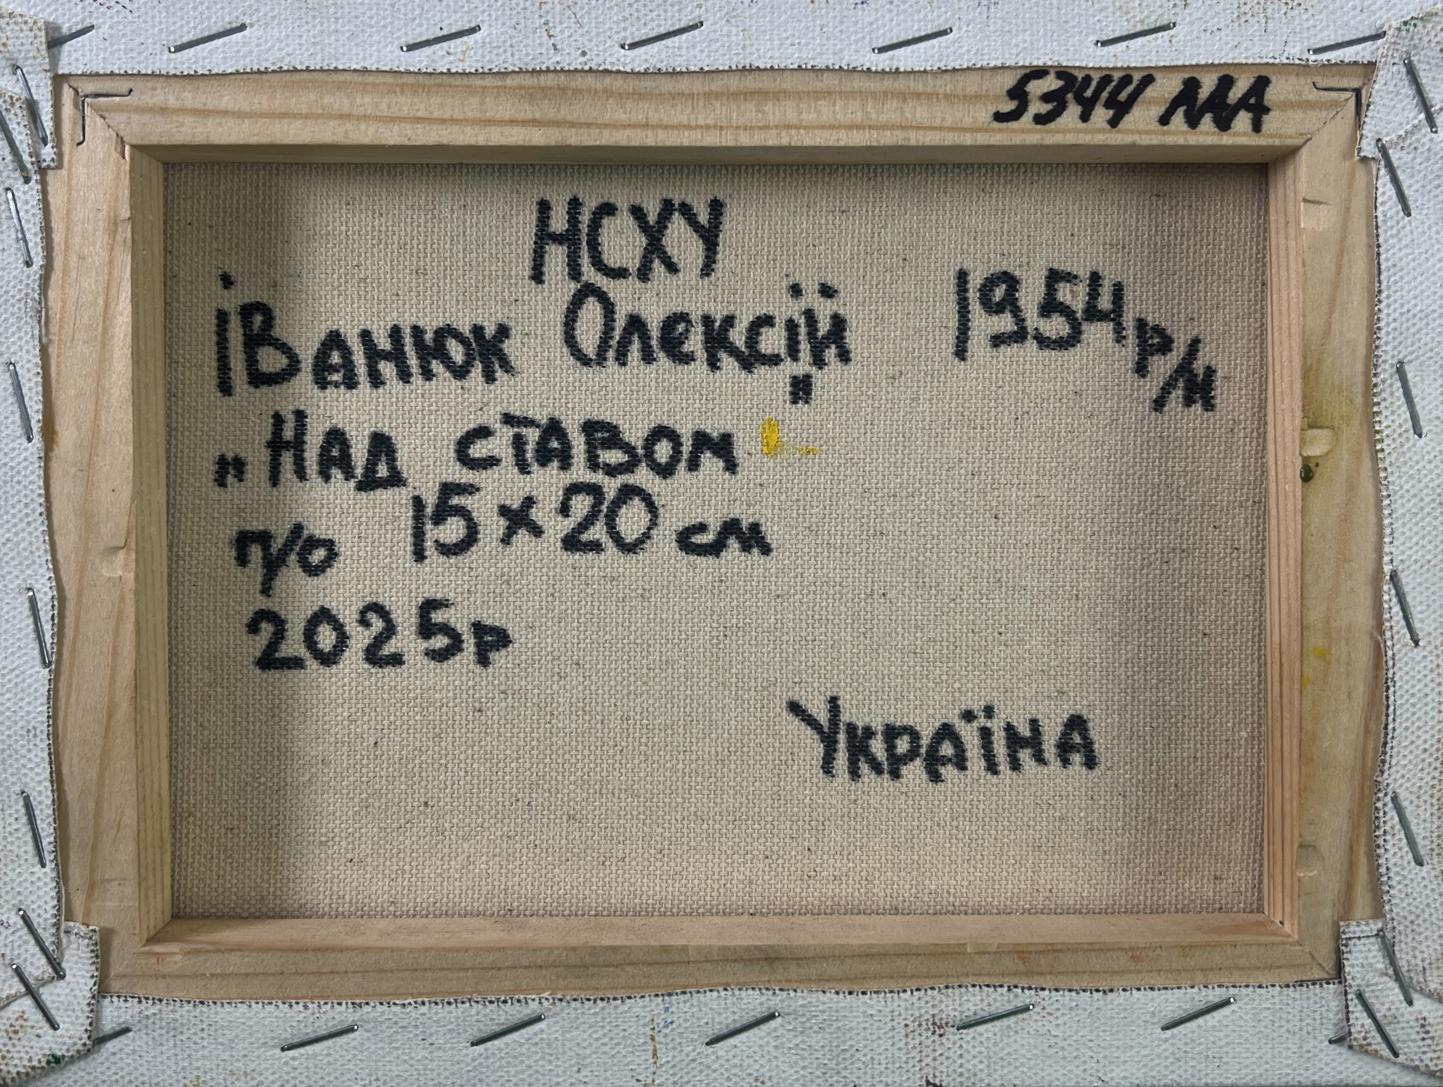 5344 ААА
НСХУ
Іванюк Олексій 1954 р/н
„Над ставом"
п/о 15×20 см
2025р
Україна